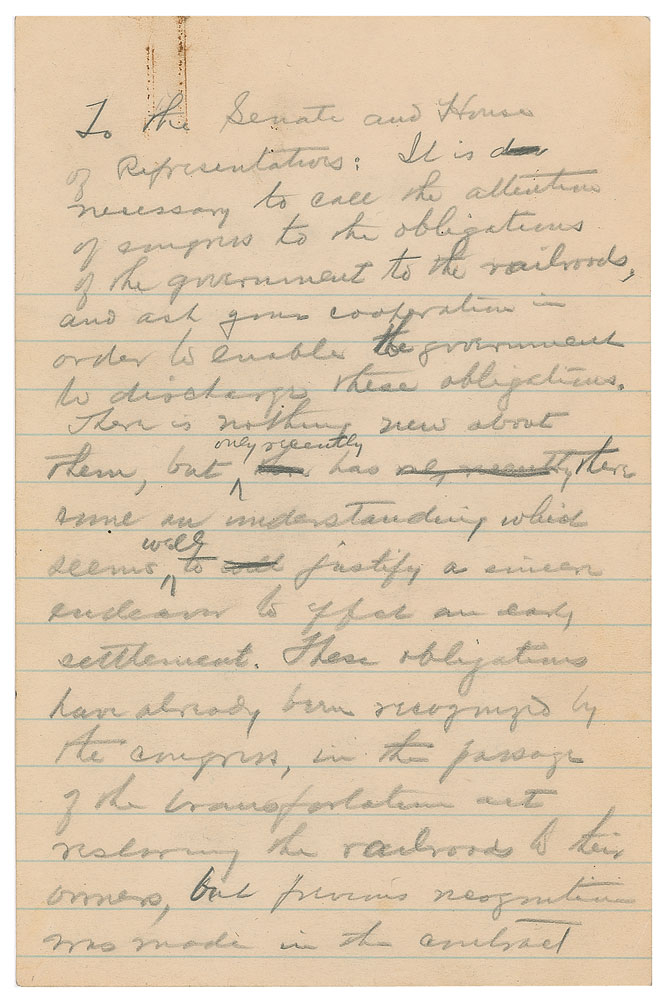 To the Senate and House
of Representatives: It is
necessary to call the attention
of congress to the obligations
of the government to the railroads,
and ask your cooperation in
order to enable the government
to discharge these obligations.
There is nothing new about
only recently
them, but has only recently there
come an understanding which
well
seems to well justify a sincere
endeavor to effect an early
settlement. These obligations
have already been recognized by
the congress, in the passage
of the transportation act
restoring the railroads to their
owners, but previous recognition
was made in the contract